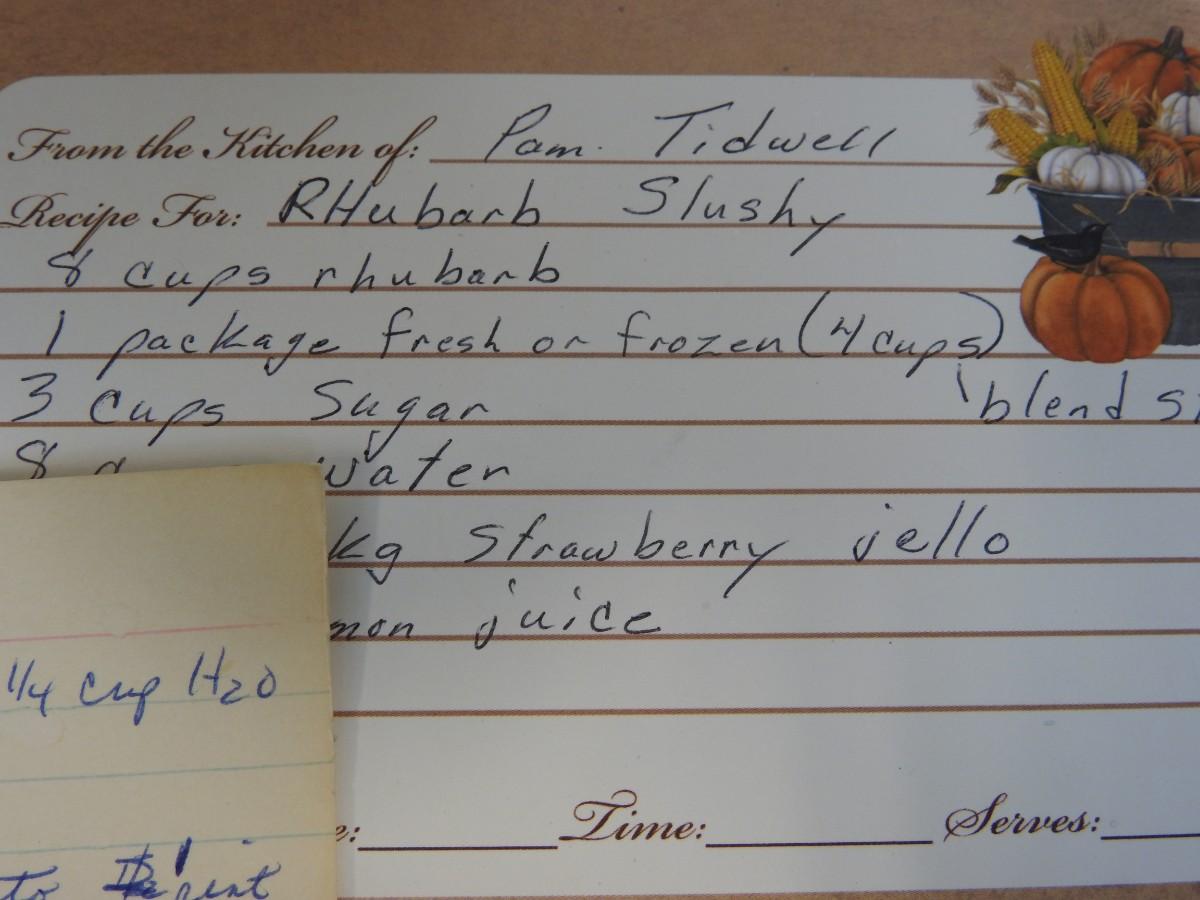 From the Kitchen of: Pam. Tidwell
Recipe For: RHubarb Slushy
8 cups rhubarb
1 package fresh or frozen (4 cups)
3 cups Sugar blend
8 water
strawberry jello
juice
1/4 cup H2O
Time: Serves:
to pint